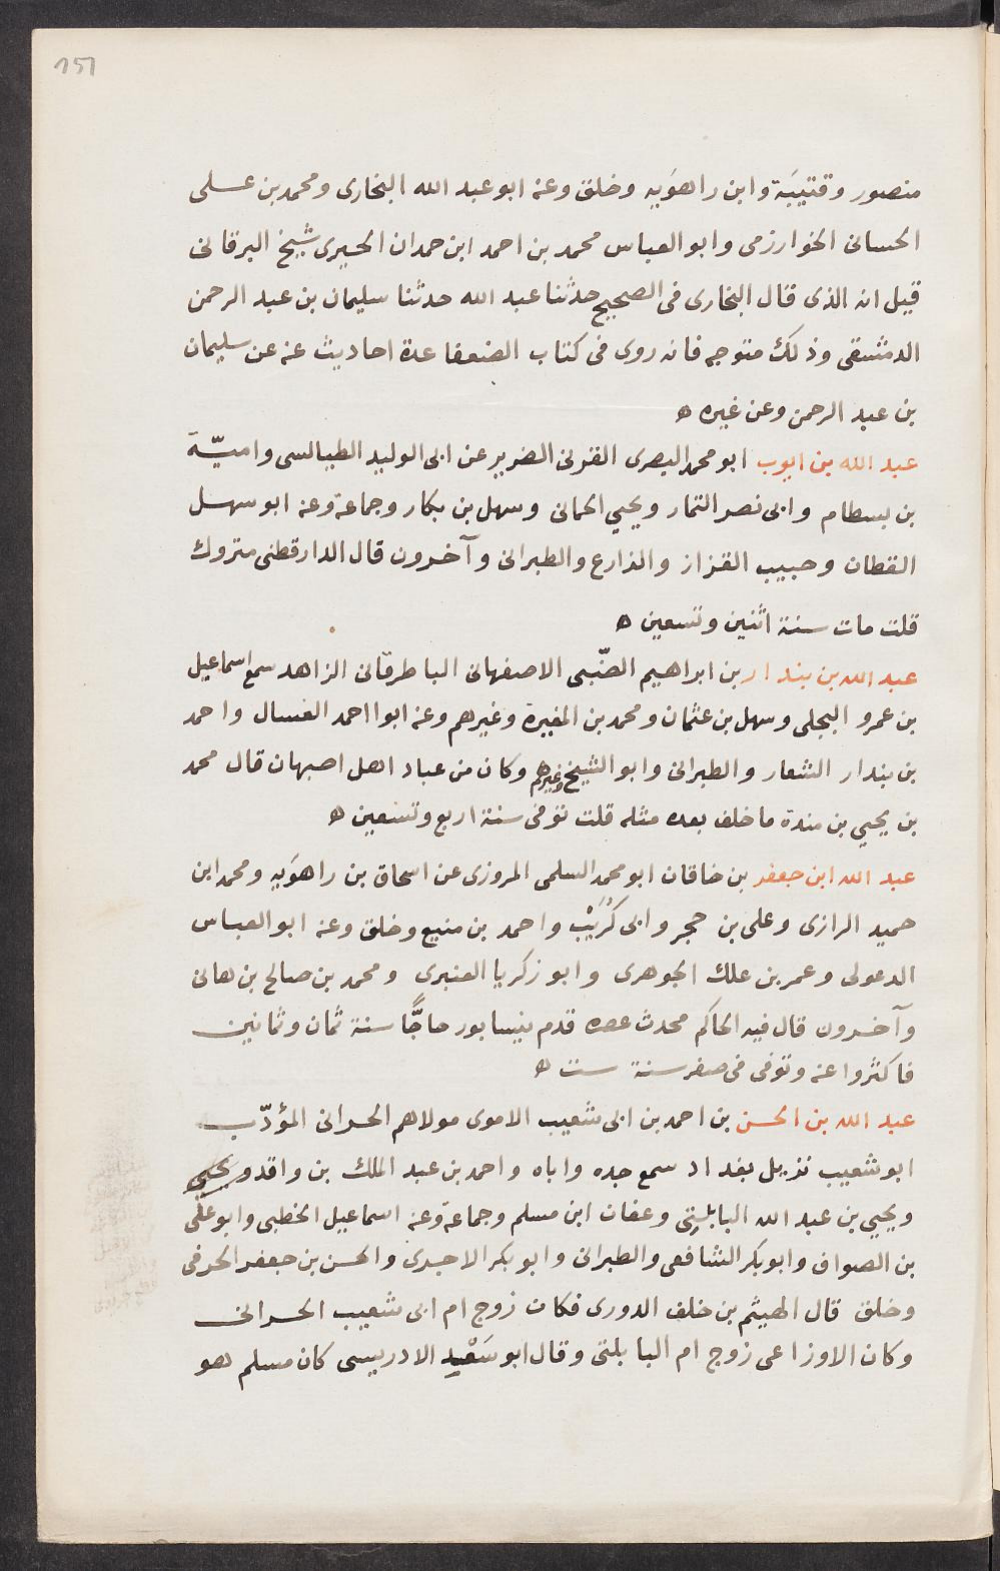 151
منصور وقتيبَة وابن راهوَيه وخلق وعنه ابو عبد الله البخارى ومحمد بن عــلى
الحسانى الخوارزمى وابو العباس محمد بن احمد ابن حمدان الحيرى شيخ البرقانى
قيل انه الذى قال البخارى فى الصحيح حدثنا عبد الله حدثنا سليمان بن عبد الرحمن
الدمشقى وذلك متوجه فانه روى فى كتاب الضعفا عدة احاديث عنه عن سليمان
بن عبد الرحمن وعن غيره ه
عبد الله بن ايوب ابو محمد البصرى القربى الضرير عن ابى الوليد الطيالسى واميّـة
بن بسطام وابى نصر التمار ويحيي الحمانى وسهل بن بكار وجماعة وعنه ابو سهـل
القطان وحبيب القزاز والذارع والطبرانى وآخرون قال الدارقطنى متروك
قلت مات سنة اثنين وتسعين ه
عبد الله بن بندار بن ابراهيم الضّبى الاصفهانى الباطرقانى الزاهد سمع اسماعيل
بن عمرو البجلى وسهل بن عثمان ومحمد بن المغيرة وغيرهم وعنه ابوا احمد العسال واحمد
بن بندار الشعار والطبرانى وابو الشيخ وغيرهم وكان من عباد اهل اصبهان قال محمد
بن يحيي بن مندة ما خلف بعده مثله قلت توفى سنة اربع وتسعين ه
عبد الله ابن جعفر بن خاقان ابو محمد السلمى المروزى عن اسحاق بن راهوَيه ومحمد ابن
حميد الرازى وعلى بن حجر وابى كُرَيْب واحمد بن منيع وخلق وعنه ابو العباس
الدعولى وعمر بن علك الجوهرى وابو زكريا العنبرى ومحمد بن صالح بن هانى
وآخرون قال فيه الحاكم محدث عصره قدم نيسابور حاجًّا سنة ثمان وثمانين
فاكثروا عنه وتوفى فى صفر سنة ست ه
عبد الله بن الحسن بن احمد بن ابى شعيب الاموى مولاهم الحرانى المؤدّب
ابو شعيب نزيل بغداد سمع جده واباه واحمد بن عبد الملك بن واقد ويحيى
ويحيي بن عبد الله البابلتى وعفان ابن مسلم وجماعة وعنه اسماعيل الخطبى وابو على
بن الصواف وابو بكر الشافعى والطبرانى وابو بكر الاجرى والحسن بن جعفر الحرفى
وخلق قال الهيثم بن خلف الدورى فكان زوج ام ابى شعيب الحرانى
وكان الاوزاعى زوج ام البابلتى وقال ابو سَعْيد الادريسى كان مسلم هو